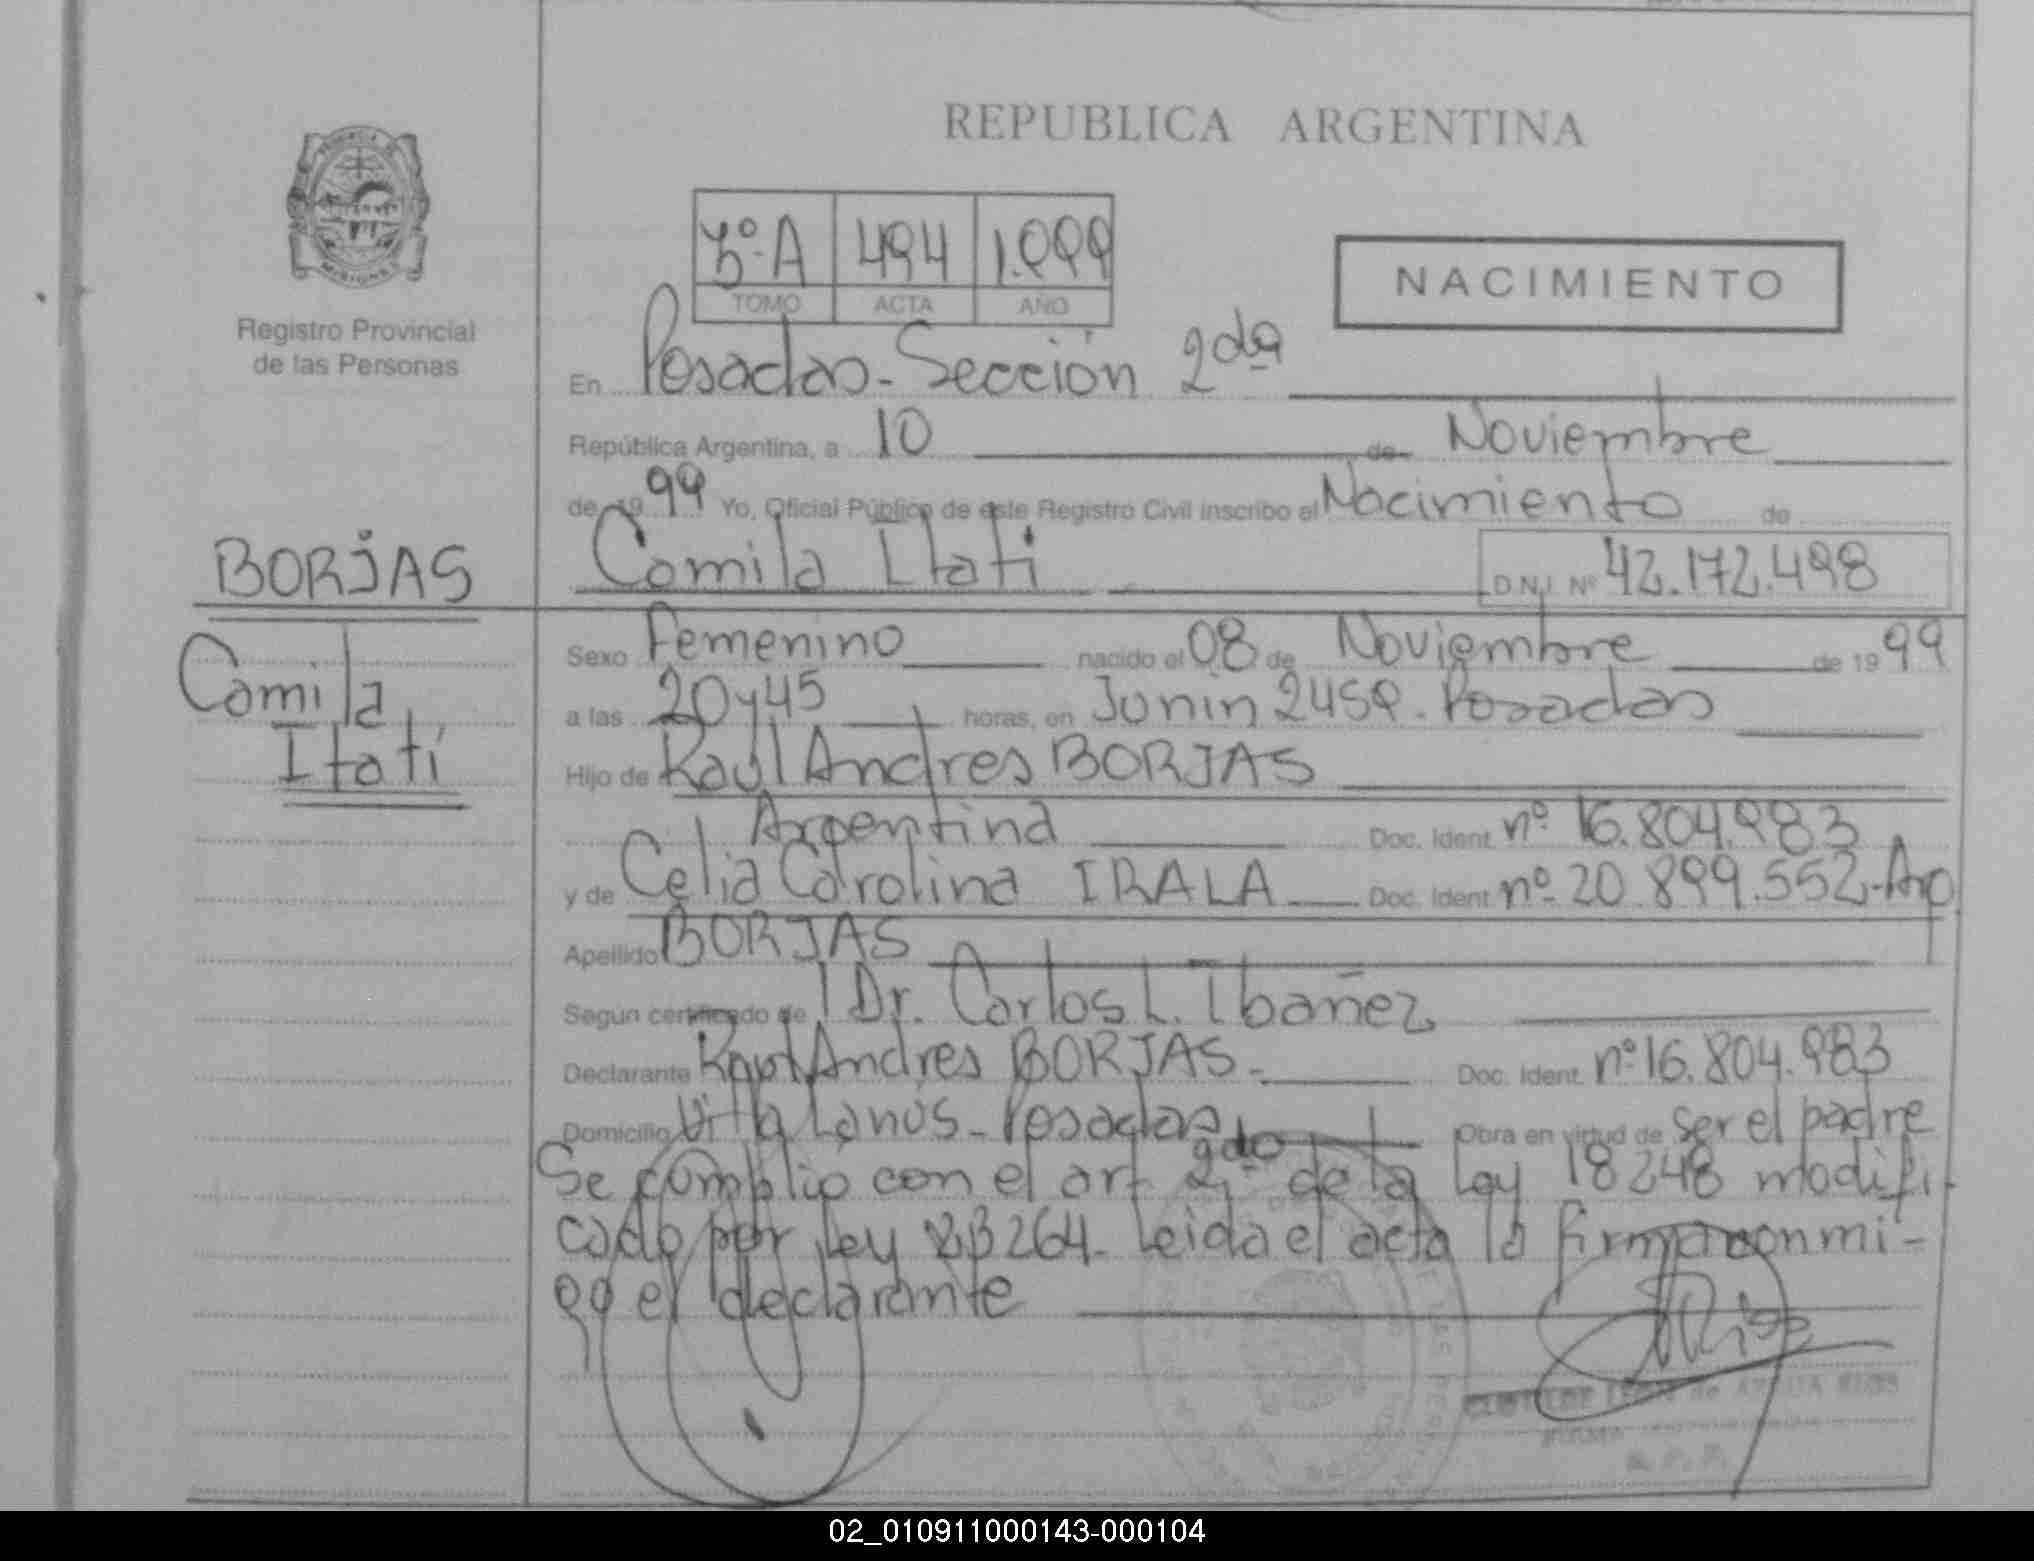 REPUBLICA ARGENTINA
3º A 494 1.999
TOMO ACTA AÑO
NACIMIENTO
Registro Provincial
de las Personas
En Posadas - Sección 2da
República Argentina, a 10 de Noviembre
de 1999 Yo, Oficial Público de este Registro Civil inscribo el Nacimiento de
Camila Itati D.N.I. Nº 42.172.498
BORJAS
Camila
Itatí
Sexo Femenino nacido el 08 de Noviembre de 1999
a las 20 y 45 horas, en Junin 2459. Posadas
Hijo de Raúl Andres BORJAS
Argentina Doc. Ident. nº 16.804.983
y de Celia Carolina IRALA Doc. Ident. nº 20.899.552-Arg
Apellido BORJAS
Según certificado de Dr. Carlos L. Ibañez
Declarante Raul Andres BORJAS. Doc. Ident. nº 16.804.983
Domicilio Villa Lanús - Posadas Obra en virtud de ser el padre
Se cumplio con el art 2do de la Ley 18248 modifi-
cado por ley 23264. Leida el acta la firma conmi-
go el declarante
02_010911000143-000104